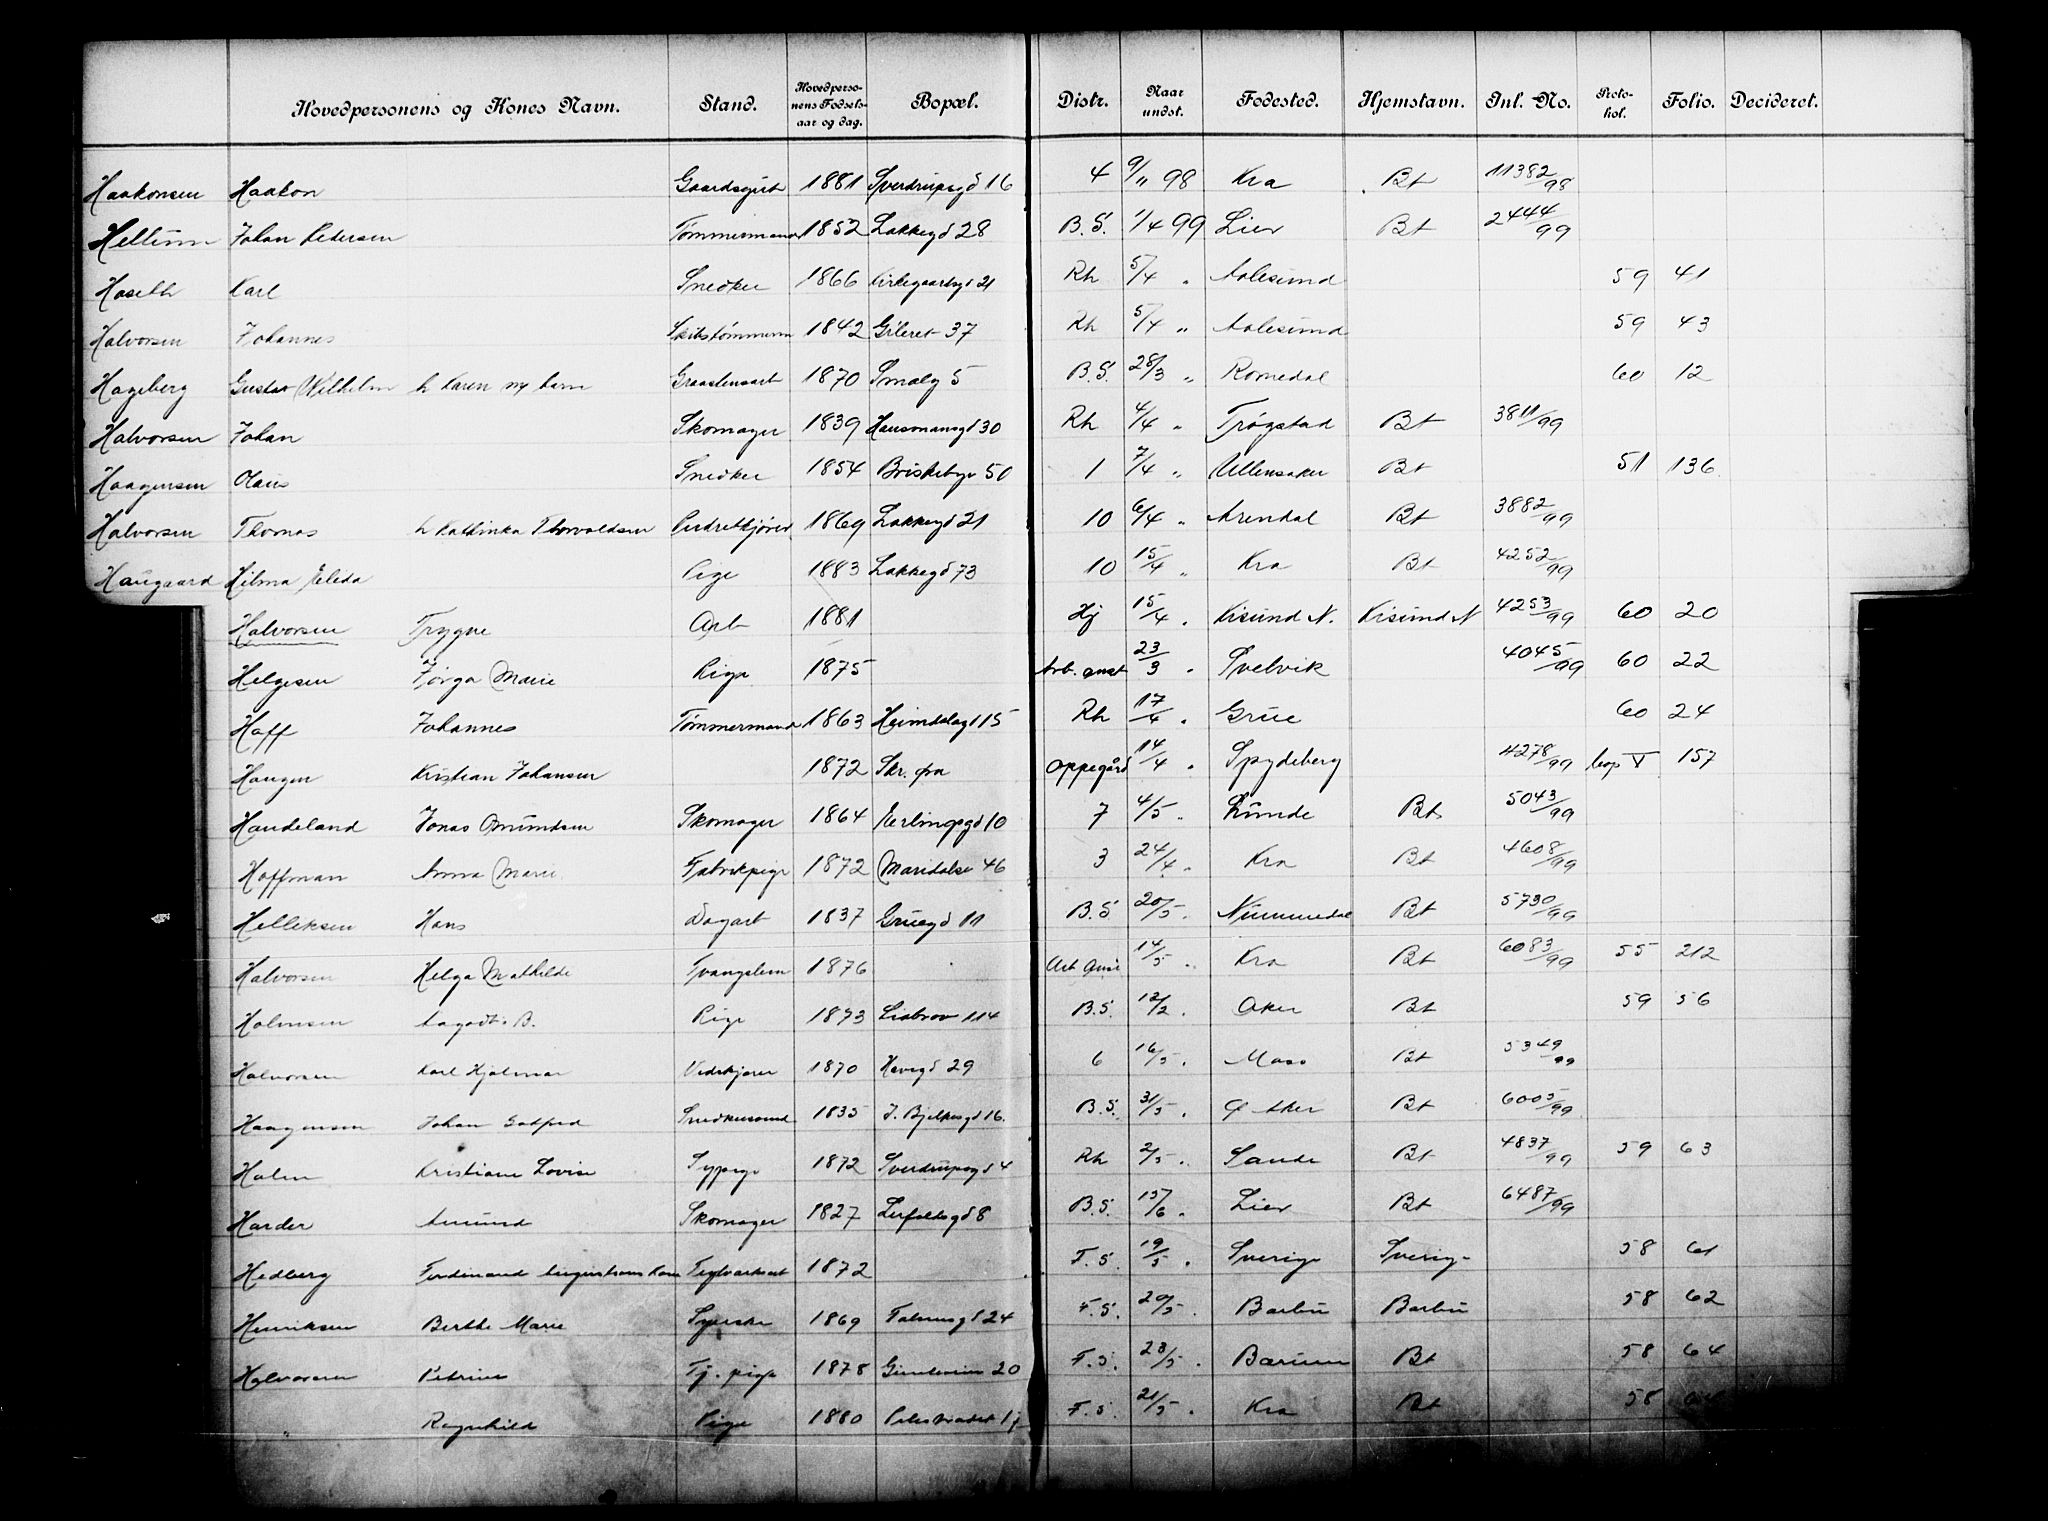 Hovedpersonens og Kones Navn. Stand. Hovedpersonens Fødselsaar og dag. Bopæl. Distr. Naar undst. Fødested. Hjemstavn. Inl. No. Protokol. Folio. Decideret.
Haakonsen Haakon Gaardsgut 1881 Sverdrupsgd 16 4 9/11 98 Kra Bt 11382/98
Hellum Johan Pedersen Tømmermand 1852 Lakkegd 28 B.S. 1/4 99 Lier Bt 2444/99
Haseth Karl Snedker 1866 Kirkegaardsgd 21 Rh 5/4 " Aalesund 59 41
Halvorsen Johannes Skibstømmerm 1842 Grileret 37 Rh 5/4 " Aalesund 59 43
Hageberg Gustav Wilhelm h Karen My 1870 Smalg 5 B.S. 28/3 " Romedal 60 12
Halvorsen Johan Skomager 1839 Hausmansgd 30 Rh 4/4 " Trøgstad Bt 3811/99
Haagensen Olaus Snedker 1854 Briskebyv 50 1 7/4 " Ullensaker Bt 51 136
Halvorsen Thomas h Kathinka Thorvaldsen 1869 Lakkegd 21 10 6/4 " Arendal Bt 3882/99
Haugaard Hilma Pige 1883 Lakkegd 73 10 15/4 " Kra Bt 4252/99
Halvorsen Trygve Arb 1881 Hj 15/4 " 4253/99 60 20
Helgesen Marie Pige 1875 Arb. anst 23/3 " Svelvik 4045/99 60 22
Hoff Johannes Tømmermand 1863 Heimdalsgd 15 Rh 17/4 " Grue 60 24
Haugen Kristian Johansen 1872 Skr. fra Oppegård 14/4 " Spydeberg 4278/99 V 157
Haudeland Jonas Omundsen Skomager 1864 Erlingsgd 10 7 4/5 " Lunde Bt 5043/99
Hoffman Anna Marie Fabrikpige 1872 Maridalsv 46 3 24/4 " Kra Bt 4608/99
Helleksen Hans Dagarb 1837 Gruegd 11 B.S 20/5 " Nummedal Bt 5730/99
Halvorsen Helga Mathilde Tvangslem 1876 Arb Anst 14/5 " Kra Bt 6083/99 55 212
Holmsen B. Pige 1873 114 B.S. 12/2 " Aker Bt 59 56
Halvorsen Karl Hjalmar Vedkjører 1870 29 6 16/5 " Moss Bt 5349/99
Haagensen Johan Gotfred Snedkersvend 1835 J. Bjelkesgd 16. B.S. 31/5 " Aker Bt 6005/99
Holm Kristiane Lovise Sypige 1872 Sverdrupsgd 4 Rh 2/5 " Sande Bt 4837/99 59 63
Harder Amund Skomager 1827 8 B.S. 15/6 " Lier Bt 6487/99
Hedberg Ferdinand 1872 F.S. 19/5 " Sverige Sverig- 58 61
Henriksen Berthe Marie Syerske 1869 24 F.S. 20/5 " Barbu Barbu 58 62
Halvorsen Petrine Tj. pige 1878 20 F.S. 23/5 " Bærum Bt 58 64
" Ragnhild Pige 1880 F.S. 21/5 " Kra Bt 58